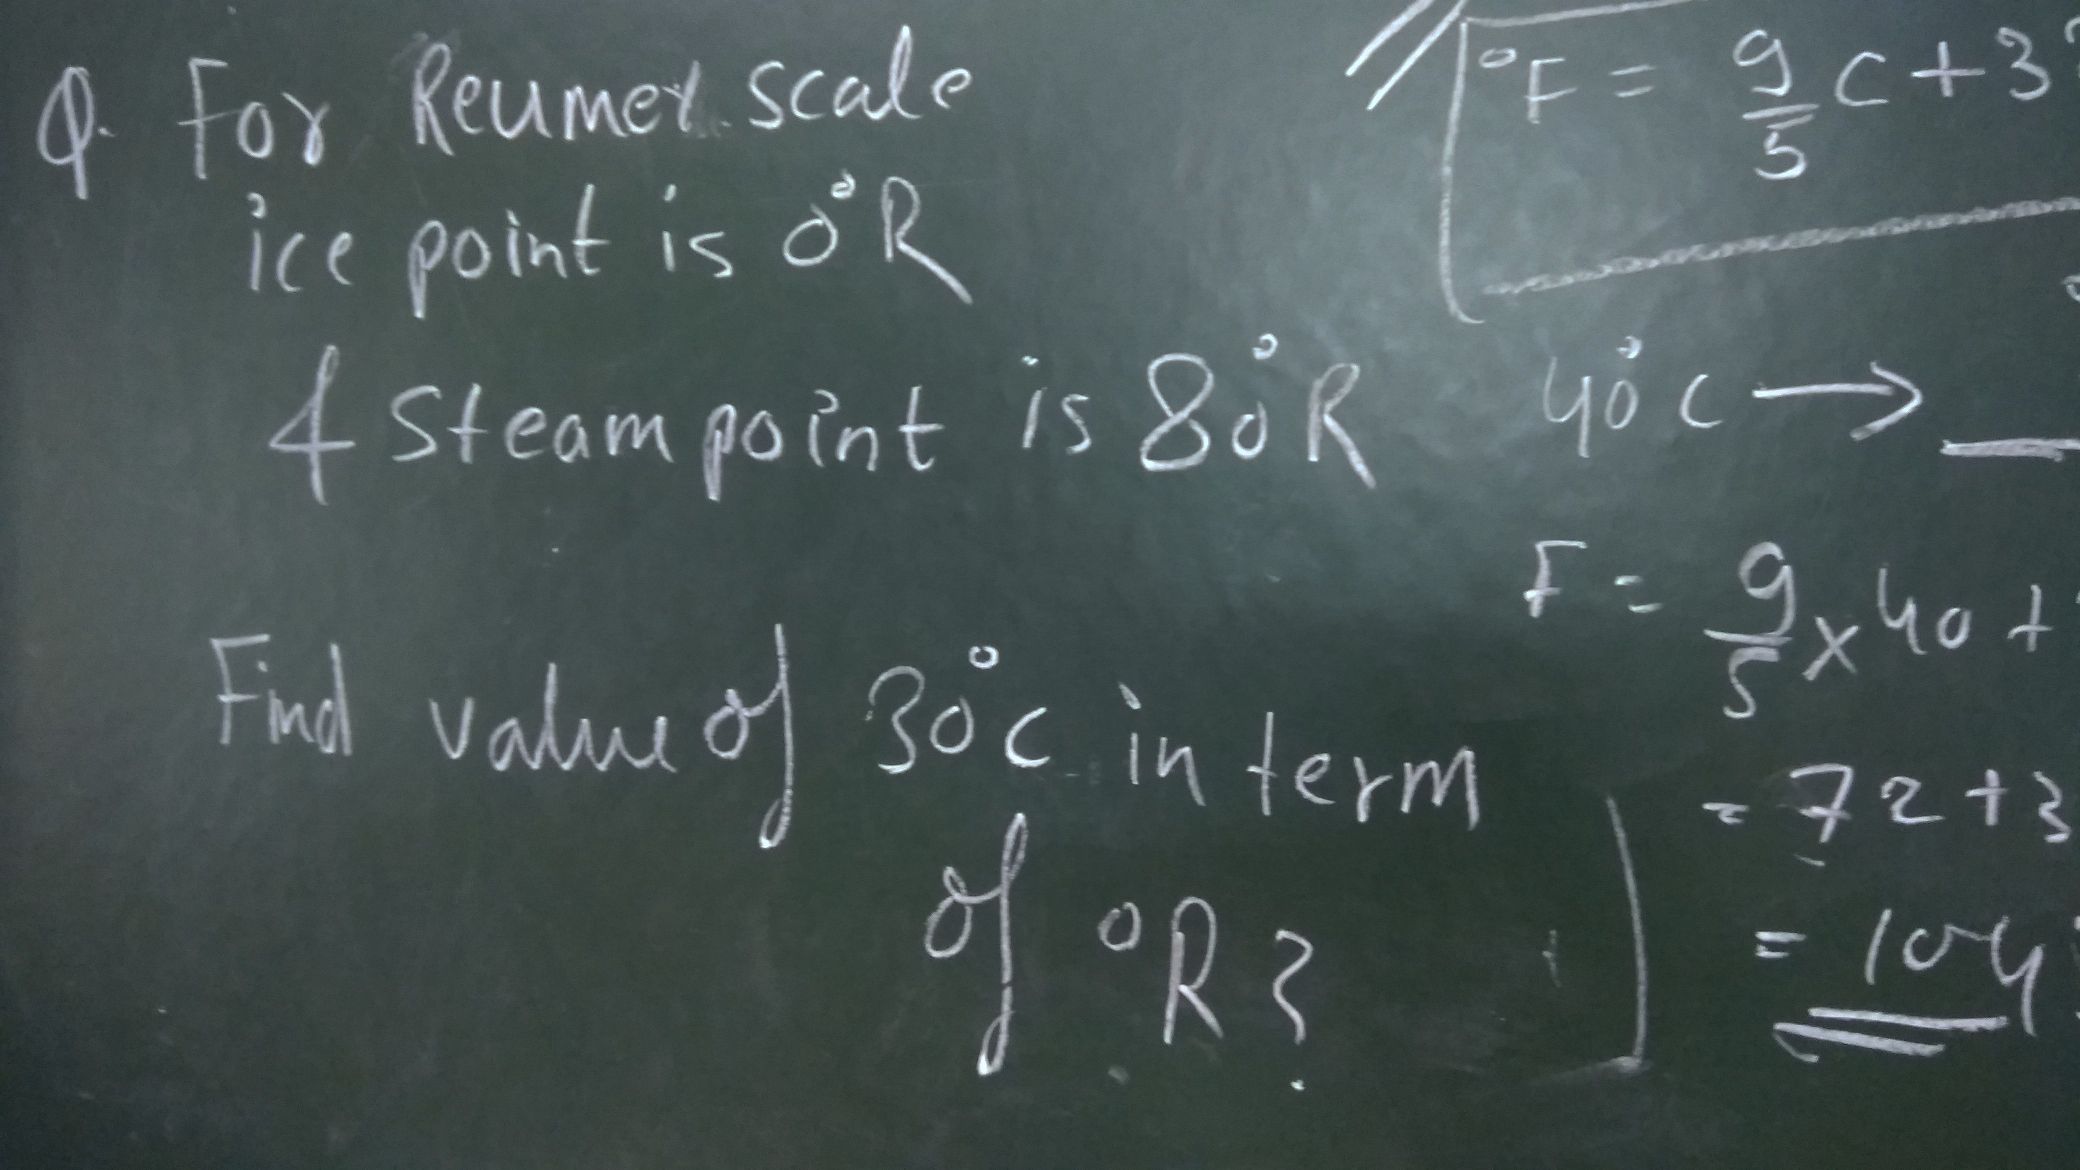 Q. For Reumer scale
ice point is 0°R
& Steam point is 80°R
Find value of 30°C in term
of °R?
°F = 9/5 C + 3
40°C →
F = 9/5 x 40 +
= 72 + 3
= 104